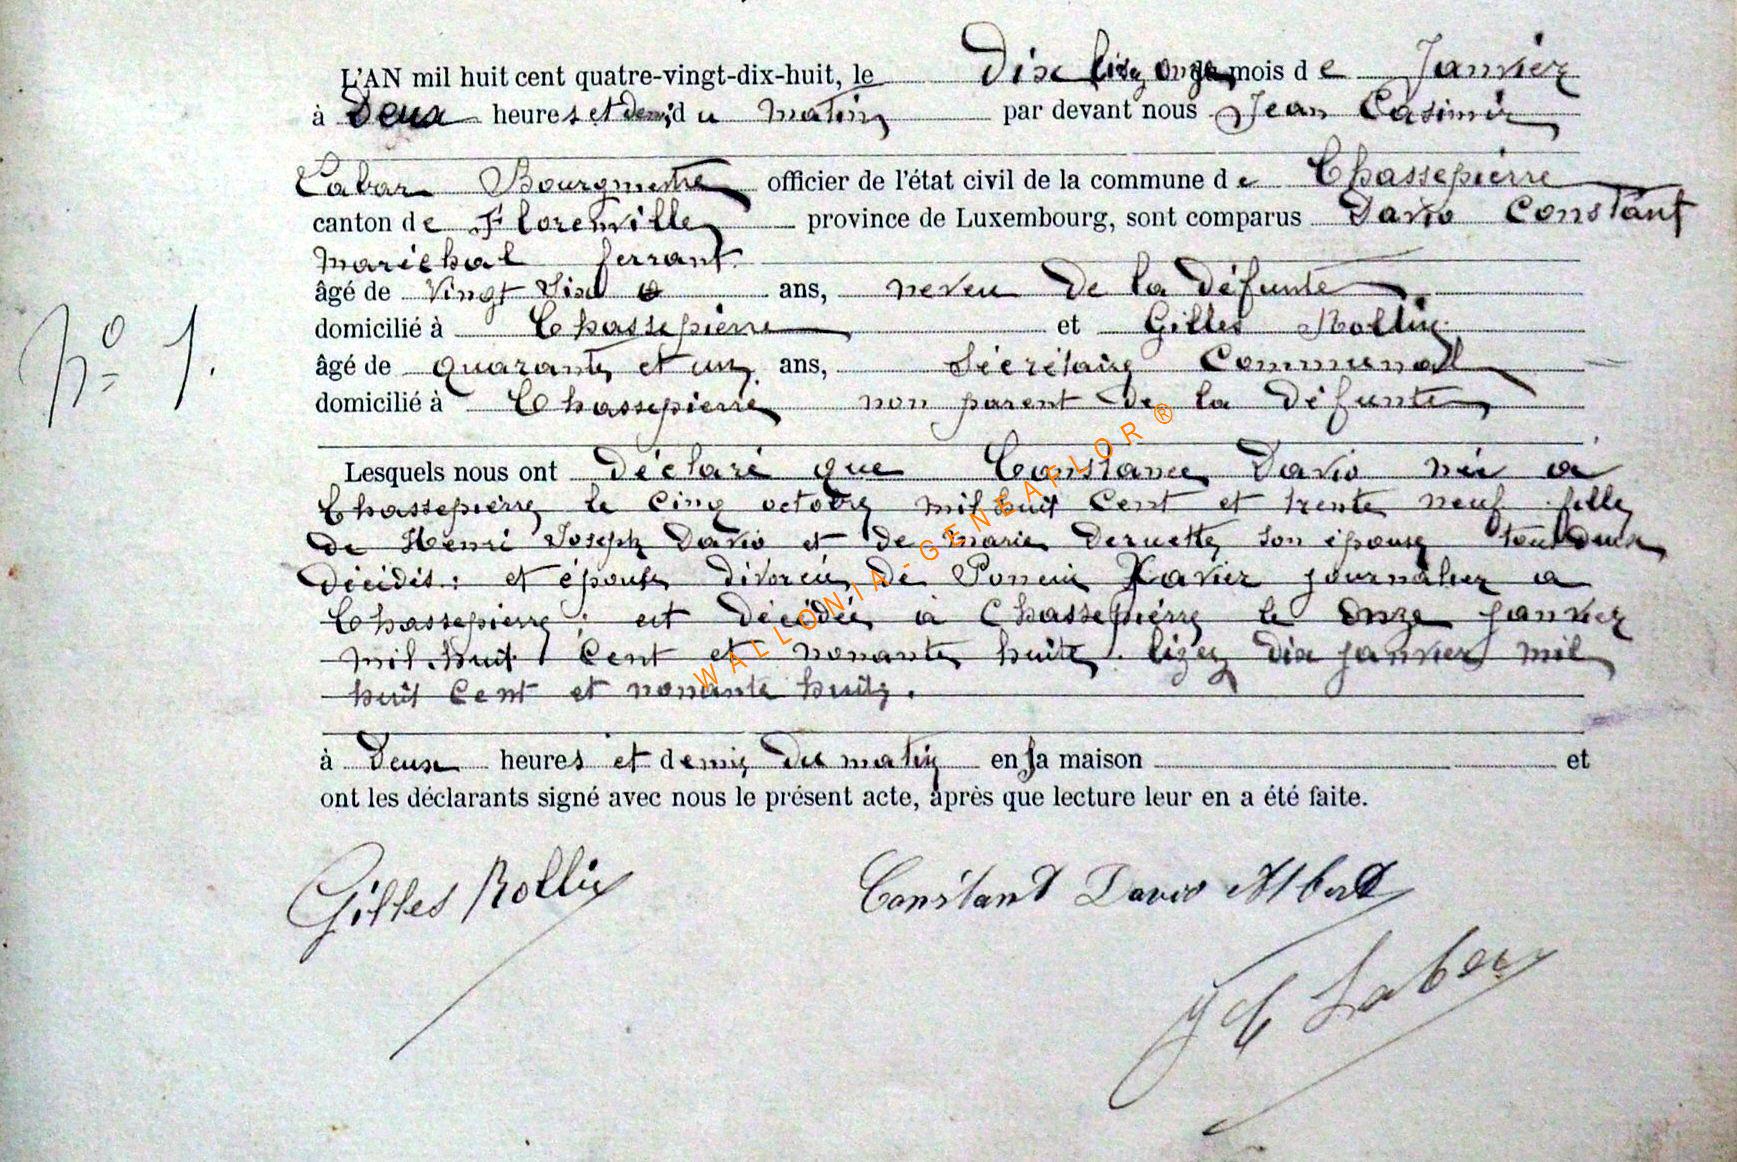 L'AN mil huit cent quatre-vingt-dix-huit, le Dix lisez onze du mois de Janvier
à Deux heures et demi du matin par devant nous Jean Casimir
Labar Bourgmestre officier de l'état civil de la commune de Chassepierre
canton de Florenville province de Luxembourg, sont comparus Davio Constant
maréchal ferrant
âgé de vingt six ans, neveu de la défunte
domicilié à Chassepierre et Gilles Rollin
N° 1.
âgé de quarante et un ans, Sécrétaire Communal
domicilié à Chassepierre non parent de la défunte
Lesquels nous ont déclaré que Constance Davio née a
Chassepierre le cinq octobre mil huit cent et trente neuf fille
de Henri Joseph Davio et de marie Deruette son épouse tout deux
décidés : et épouse divorcée de Poncin Xavier journalier a
Chassepierre ; est décédée à Chassepierre le onze janvier
mil huit cent et nonante huite. lizez dix janvier mil
huit cent et nonante huite.
à Deux heures et demie du matin en sa maison et
ont les déclarants signé avec nous le présent acte, après que lecture leur en a été faite.
Gilles Rollin Constant Davio Albert
J C Labar
WALLONIA-GENEAFLOR ®